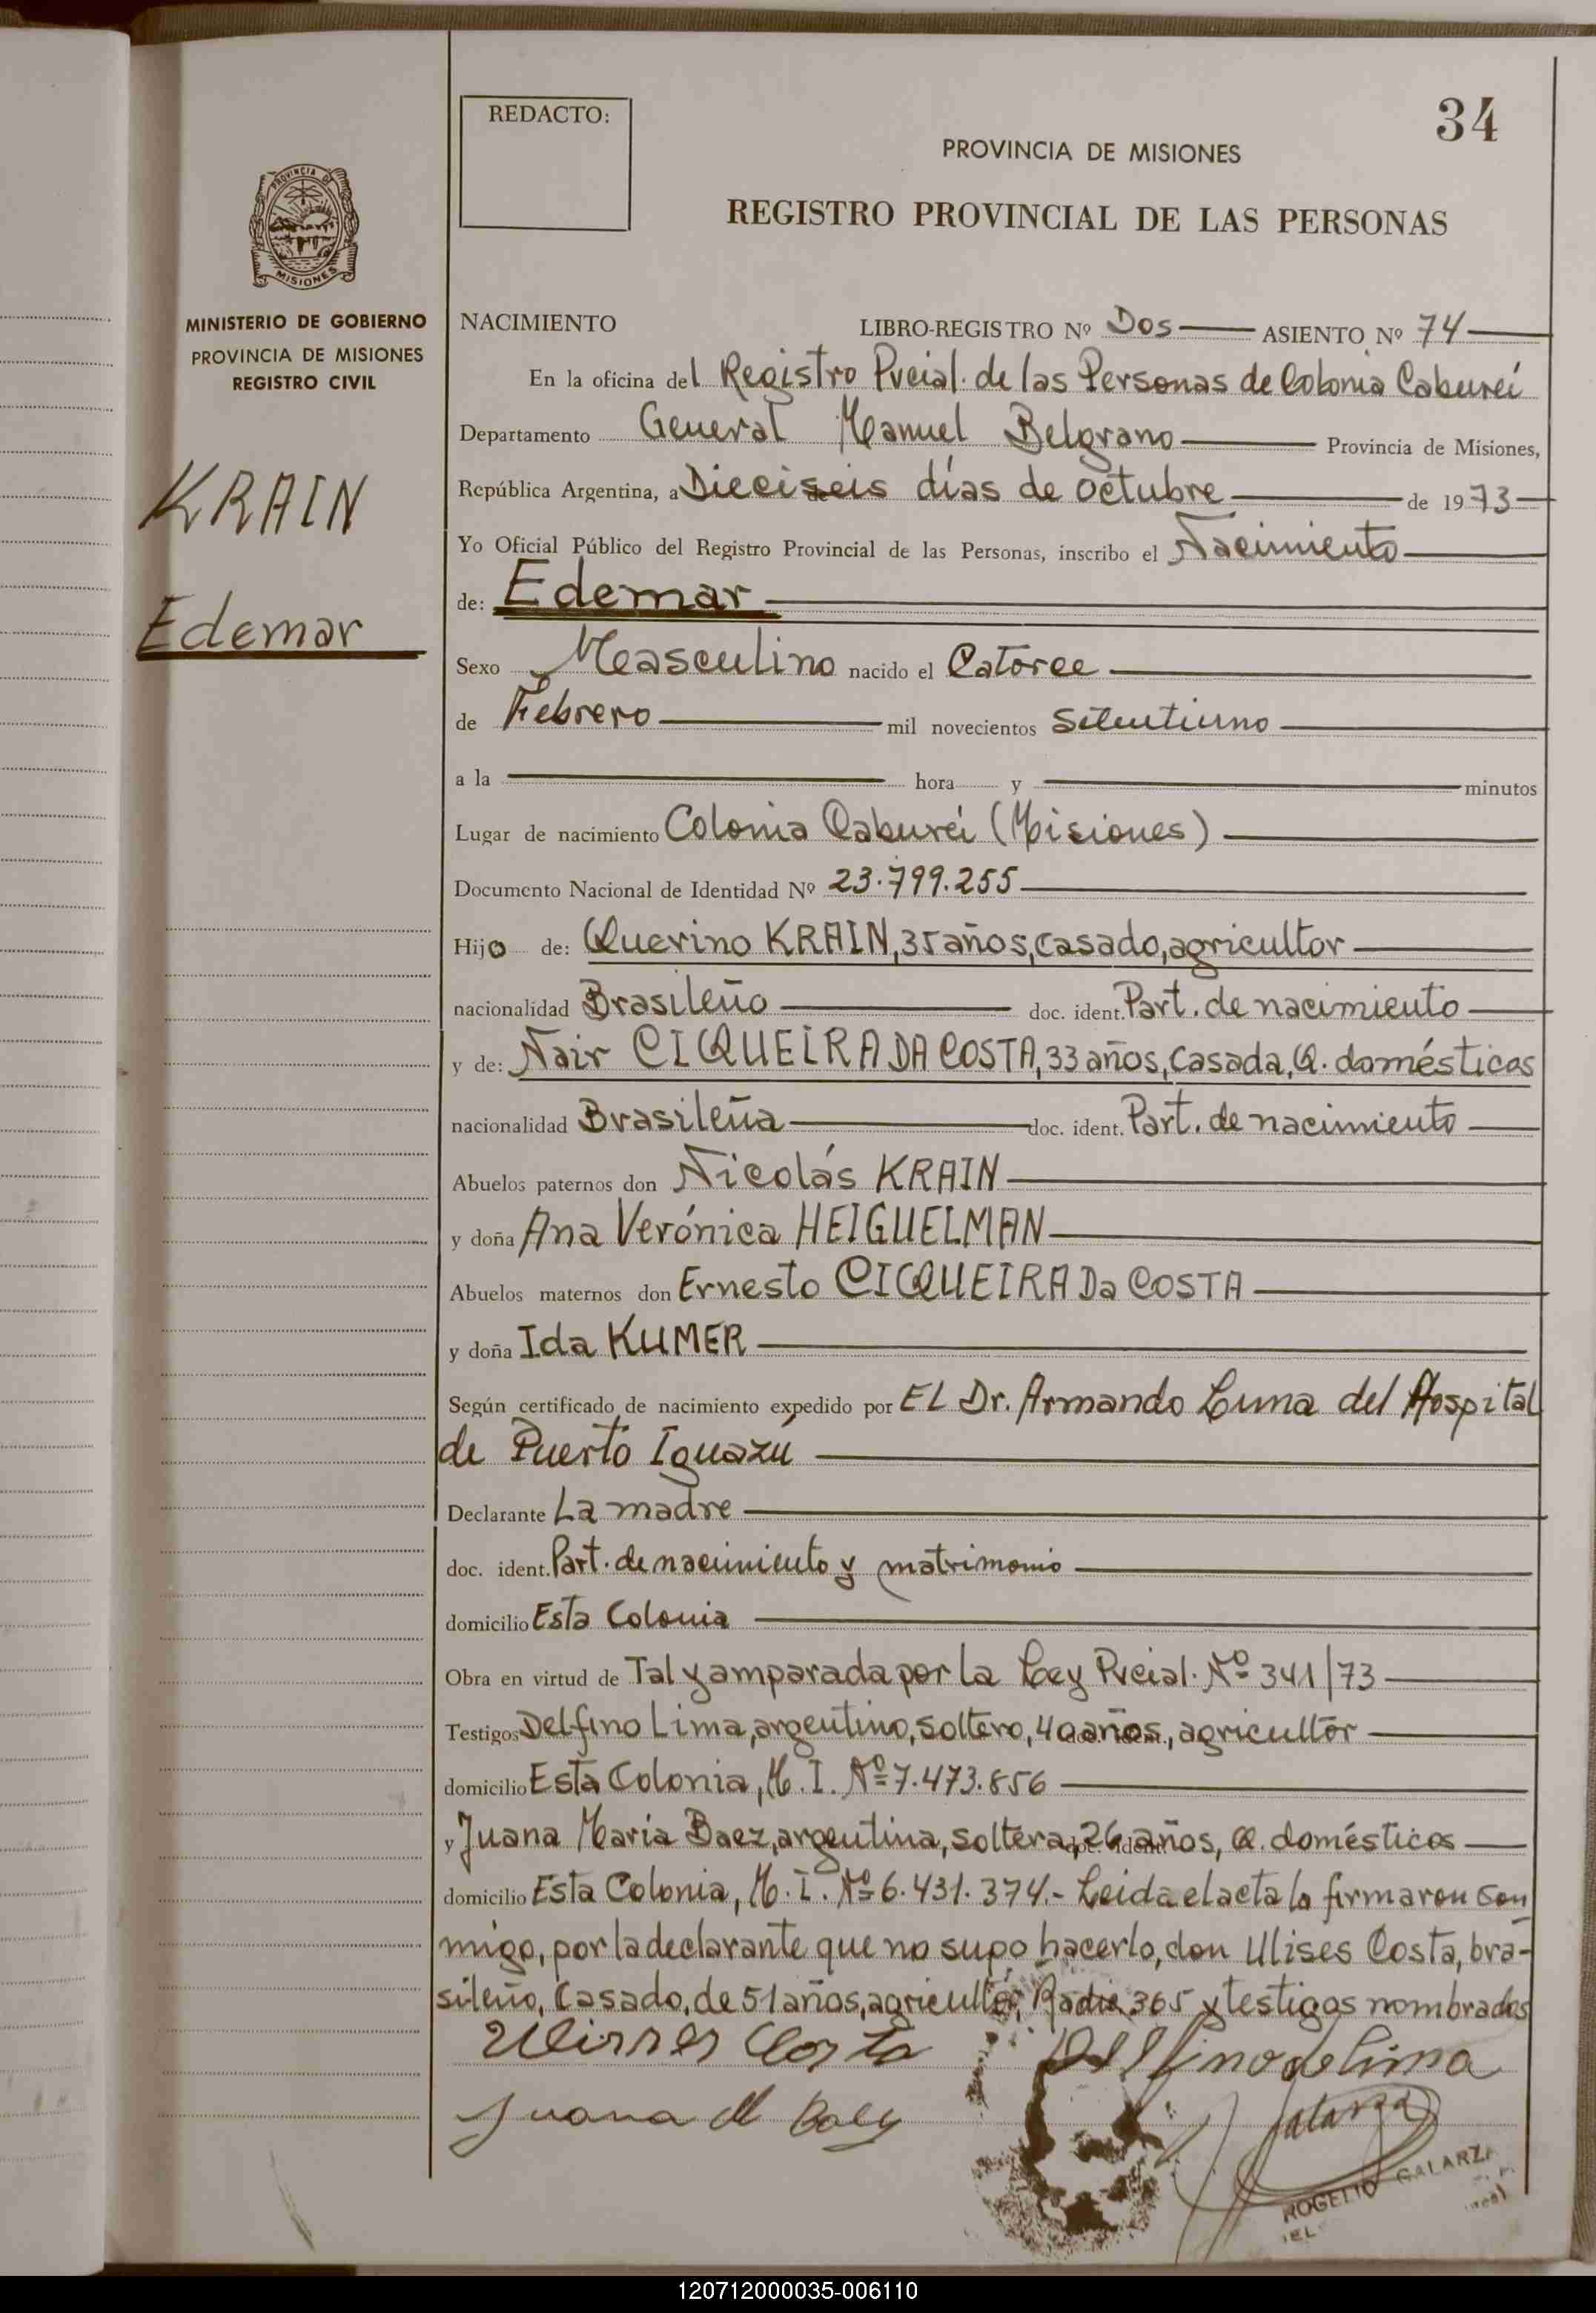 34
REDACTO:
PROVINCIA DE MISIONES
REGISTRO PROVINCIAL DE LAS PERSONAS
PROVINCIA DE
MISIONES
MINISTERIO DE GOBIERNO
PROVINCIA DE MISIONES
REGISTRO CIVIL
KRAIN
Edemar
NACIMIENTO LIBRO-REGISTRO Nº Dos ASIENTO Nº 74
En la oficina del Registro Pvcial. de las Personas de Colonia Cabureí
Departamento General Manuel Belgrano Provincia de Misiones,
República Argentina, a Dieciseis días de octubre de 1973
Yo Oficial Público del Registro Provincial de las Personas, inscribo el Nacimiento
de: Edemar
Sexo Masculino nacido el Catorce
de Febrero mil novecientos setentiuno
a la hora y minutos
Lugar de nacimiento Colonia Cabureí (Misiones)
Documento Nacional de Identidad Nº 23.799.255
Hijo de: Querino KRAIN, 35 años, casado, agricultor
nacionalidad Brasileño doc. ident. Part. de nacimiento
y de: Nair CICQUEIRA DA COSTA, 33 años, casada, Q. domésticos
nacionalidad Brasileña doc. ident. Part. de nacimiento
Abuelos paternos don Nicolás KRAIN
y doña Ana Verónica HEIGUELMAN
Abuelos maternos don Ernesto CICQUEIRA Da COSTA
y doña Ida KUMER
Según certificado de nacimiento expedido por EL Dr. Armando Luna del Hospital
de Puerto Iguazú
Declarante La madre
doc. ident. Part. de nacimiento y matrimonio
domicilio Esta Colonia
Obra en virtud de Tal y amparada por la Ley Pvcial. Nº 341/73
Testigos Delfino Lima, argentino, soltero, 40 años, agricultor
domicilio Esta Colonia, M. I. Nº 7.473.856
y Juana María Baez, argentina, soltera, 26 años, Q. domésticos
domicilio Esta Colonia, M. I. Nº 6.431.374.- Leida el acta la firmaron con
migo, por la declarante que no supo hacerlo, don Ulises Costa, bra-
sileño, casado, de 51 años, agricultor, Radio 365 y testigos nombrados
Ulisses Costa Delfino de Lima
Juana M Baez Galarza
ROGELIO GALARZA
120712000035-006110